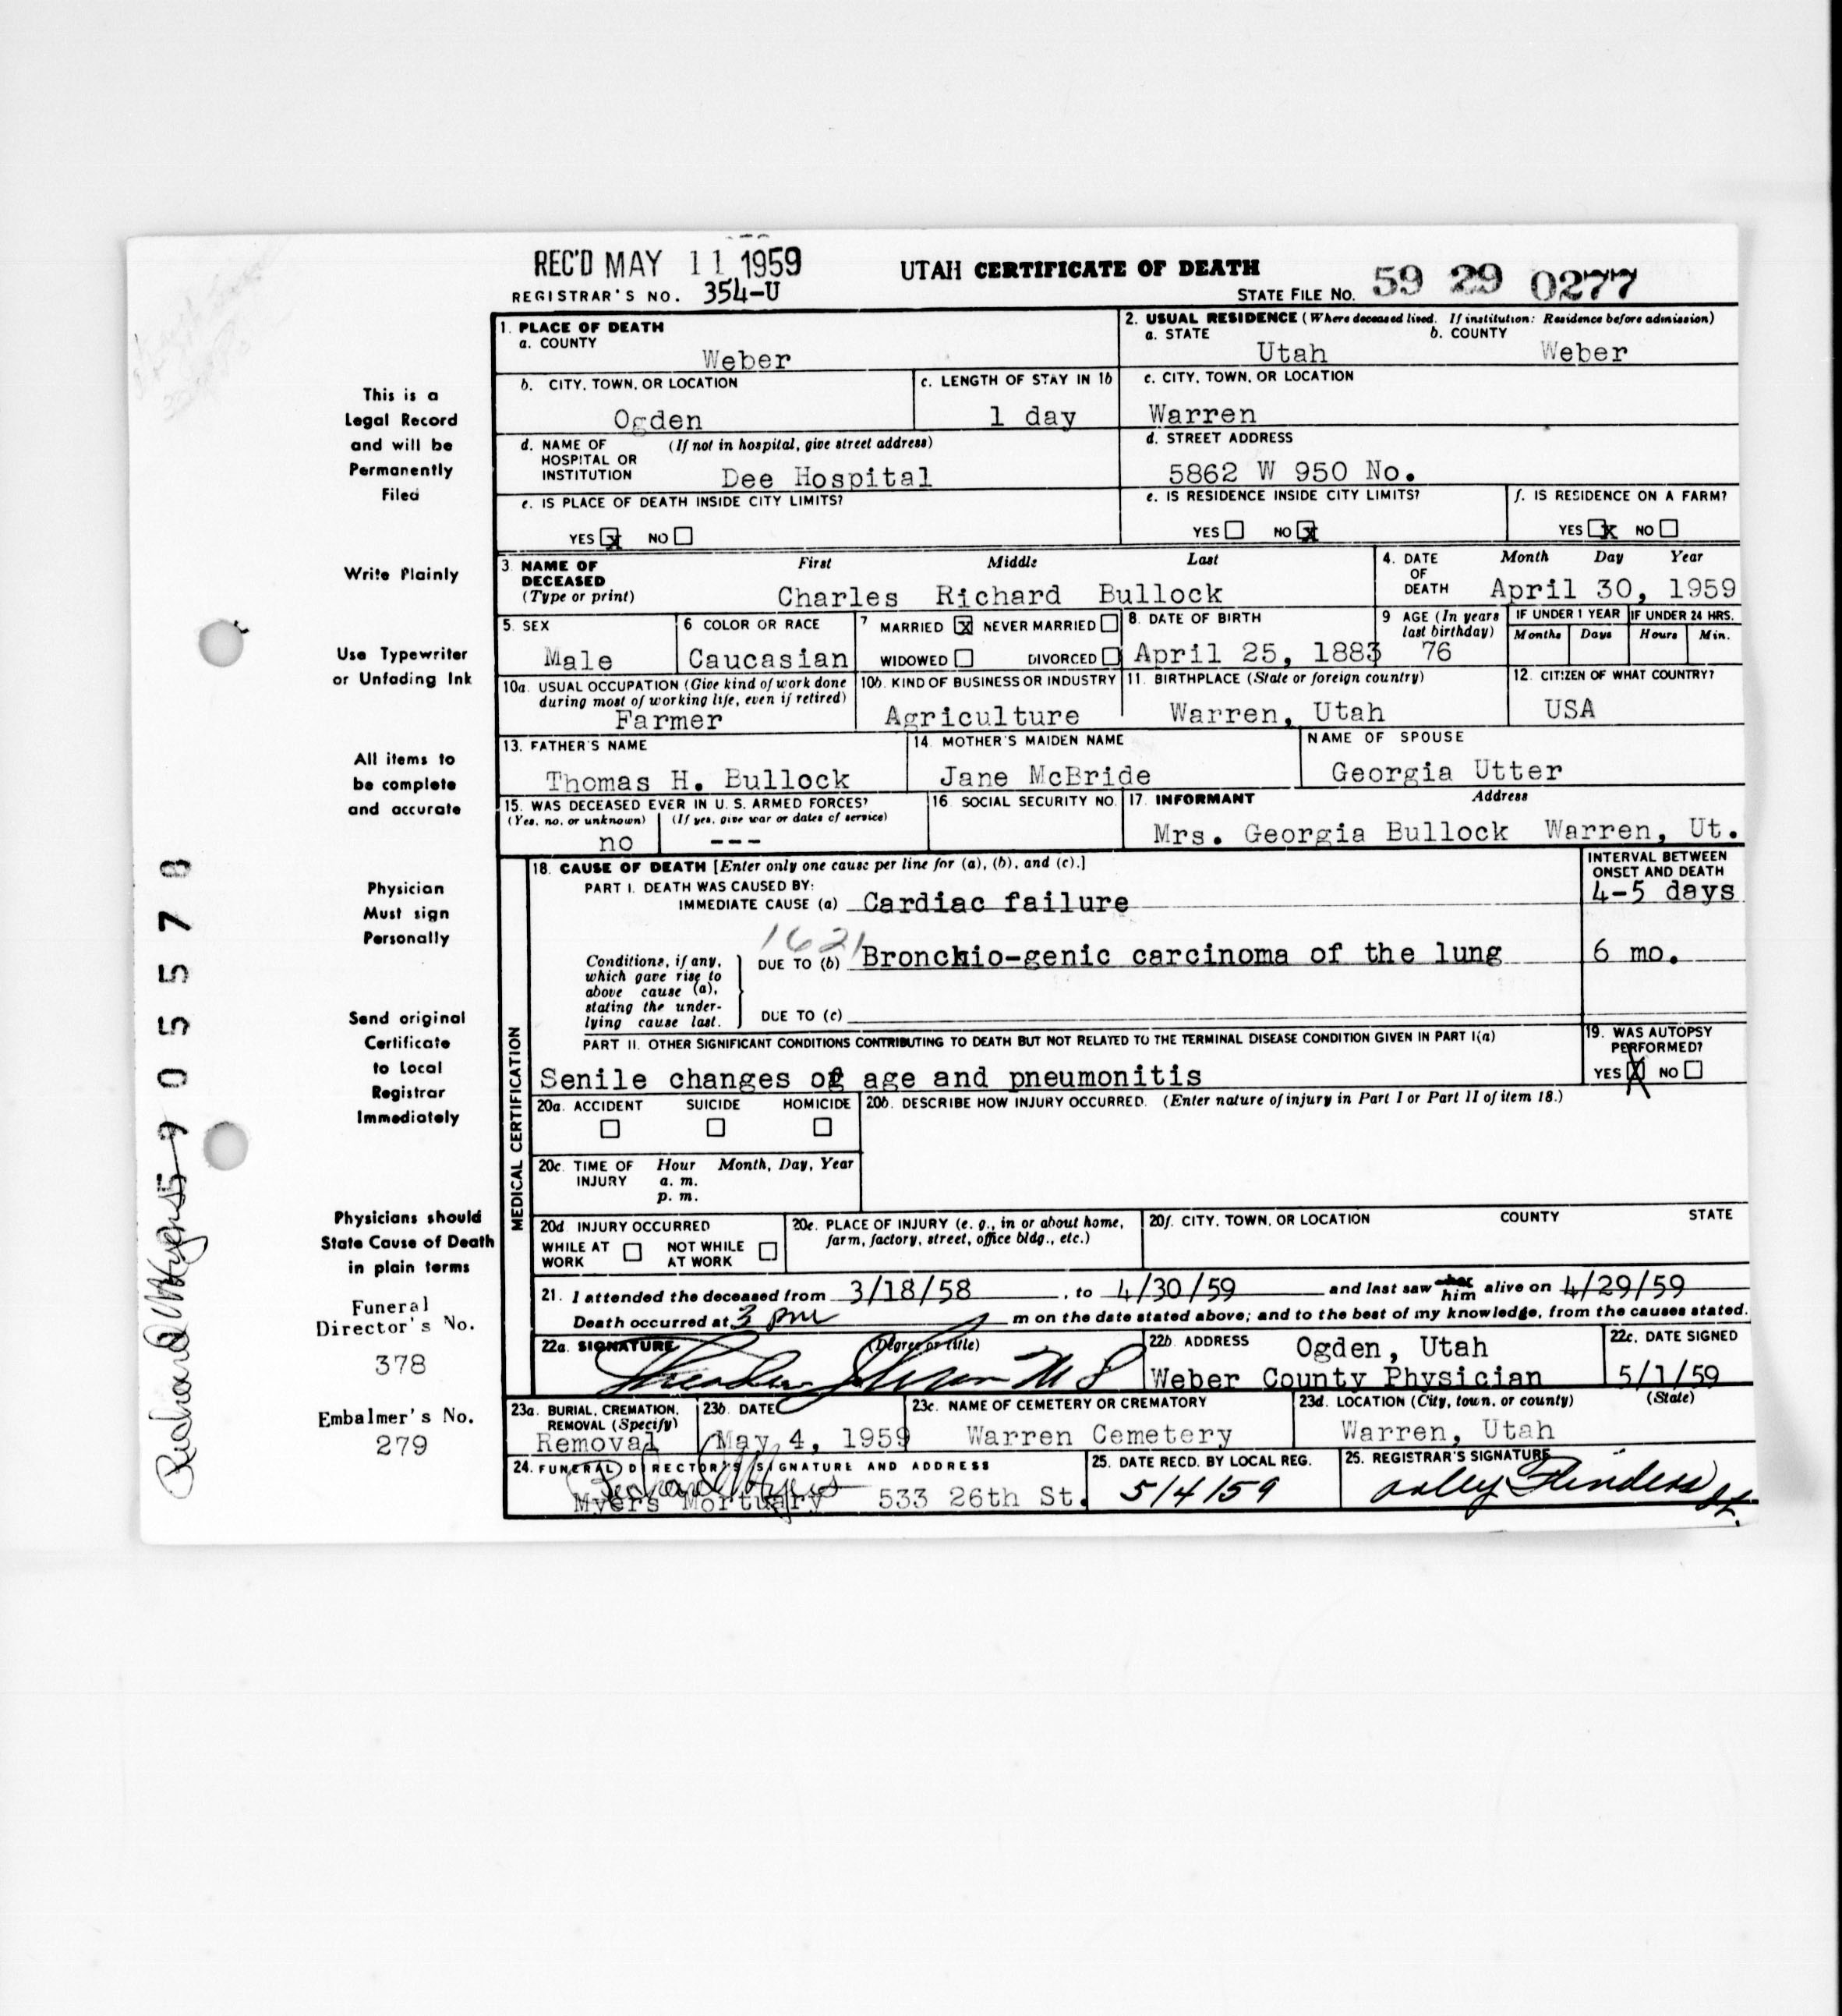 REC'D MAY 11 1959
UTAH CERTIFICATE OF DEATH
REGISTRAR'S NO. 354-U
STATE FILE NO. 59 29 0277
1. PLACE OF DEATH
a. COUNTY
Weber
2. USUAL RESIDENCE (Where deceased lived. If institution: Residence before admission)
a. STATE b. COUNTY
Utah Weber
b. CITY, TOWN, OR LOCATION
Ogden
c. LENGTH OF STAY IN 1b
1 day
c. CITY, TOWN, OR LOCATION
Warren
d. NAME OF (If not in hospital, give street address)
HOSPITAL OR
INSTITUTION Dee Hospital
d. STREET ADDRESS
5862 W 950 No.
e. IS PLACE OF DEATH INSIDE CITY LIMITS?
YES x NO
e. IS RESIDENCE INSIDE CITY LIMITS?
YES NO x
f. IS RESIDENCE ON A FARM?
YES x NO
3 NAME OF First Middle Last
DECEASED
(Type or print) Charles Richard Bullock
4. DATE Month Day Year
OF
DEATH April 30, 1959
5. SEX
Male
6 COLOR OR RACE
Caucasian
7 MARRIED x NEVER MARRIED
WIDOWED DIVORCED
8. DATE OF BIRTH
April 25, 1883
9 AGE (In years
last birthday)
76
IF UNDER 1 YEAR IF UNDER 24 HRS.
Months Days Hours Min.
10a. USUAL OCCUPATION (Give kind of work done
during most of working life, even if retired)
Farmer
10b. KIND OF BUSINESS OR INDUSTRY
Agriculture
11. BIRTHPLACE (State or foreign country)
Warren, Utah
12. CITIZEN OF WHAT COUNTRY?
USA
13. FATHER'S NAME
Thomas H. Bullock
14. MOTHER'S MAIDEN NAME
Jane McBride
NAME OF SPOUSE
Georgia Utter
15. WAS DECEASED EVER IN U. S. ARMED FORCES?
(Yes, no, or unknown) (If yes, give war or dates of service)
no ---
16. SOCIAL SECURITY NO.
17. INFORMANT Address
Mrs. Georgia Bullock Warren, Ut.
MEDICAL CERTIFICATION
18. CAUSE OF DEATH [Enter only one cause per line for (a), (b), and (c).]
INTERVAL BETWEEN
ONSET AND DEATH
PART I. DEATH WAS CAUSED BY:
IMMEDIATE CAUSE (a) Cardiac failure 4-5 days
1621
Conditions, if any,
which gave rise to
above cause (a),
stating the under-
lying cause last.
DUE TO (b) Bronchio-genic carcinoma of the lung 6 mo.
DUE TO (c)
PART II. OTHER SIGNIFICANT CONDITIONS CONTRIBUTING TO DEATH BUT NOT RELATED TO THE TERMINAL DISEASE CONDITION GIVEN IN PART I(a)
Senile changes of age and pneumonitis
19. WAS AUTOPSY
PERFORMED?
YES X NO
20a. ACCIDENT SUICIDE HOMICIDE
20b. DESCRIBE HOW INJURY OCCURRED. (Enter nature of injury in Part I or Part II of item 18.)
20c. TIME OF Hour Month, Day, Year
INJURY a. m.
p. m.
20d. INJURY OCCURRED
WHILE AT NOT WHILE
WORK AT WORK
20e. PLACE OF INJURY (e. g., in or about home,
farm, factory, street, office bldg., etc.)
20f. CITY, TOWN, OR LOCATION COUNTY STATE
21. I attended the deceased from 3/18/58, to 4/30/59 and last saw her him alive on 4/29/59
Death occurred at 3 pm m on the date stated above; and to the best of my knowledge, from the causes stated.
22a. SIGNATURE (Degree or title)
M D
22b. ADDRESS Ogden, Utah
Weber County Physician
22c. DATE SIGNED
5/1/59
23a. BURIAL, CREMATION,
REMOVAL (Specify)
Removal
23b. DATE
May 4, 1959
23c. NAME OF CEMETERY OR CREMATORY
Warren Cemetery
23d. LOCATION (City, town, or county) (State)
Warren, Utah
24. FUNERAL DIRECTOR'S SIGNATURE AND ADDRESS
Richard Myers
Myers Mortuary 533 26th St.
25. DATE RECD. BY LOCAL REG.
5/4/59
25. REGISTRAR'S SIGNATURE
Flinders
This is a
Legal Record
and will be
Permanently
Filed
Write Plainly
Use Typewriter
or Unfading Ink
All items to
be complete
and accurate
Physician
Must sign
Personally
Send original
Certificate
to Local
Registrar
Immediately
Physicians should
State Cause of Death
in plain terms
Funeral
Director's No.
378
Embalmer's No.
279
Richard Myers 5905578